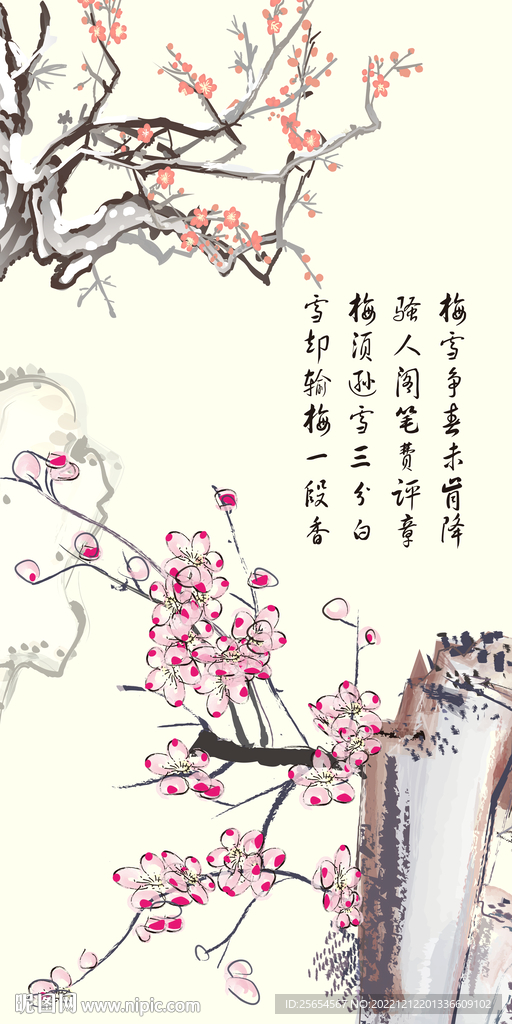 梅雪争春未肯降
骚人阁笔费评章
梅须逊雪三分白
雪却输梅一段香
昵图网 www.nipic.com
ID:25654567 NO:20221212201336609102